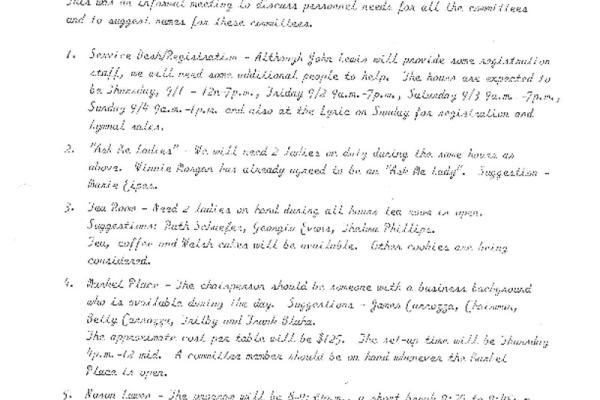 This was an informal meeting to discuss personnel needs for all the committees
and to suggest names for these committees.
1. Service Desk/Registration - Although John Lewis will provide some registration
staff, we will need some additional people to help. The hours are expected to
be Thursday, 9/1 - 12n-7p.m., Friday 9/2 9a.m.-7p.m., Saturday 9/3 9a.m. -7p.m.,
Sunday 9/4 9a.m.-1p.m. and also at the Lyric on Sunday for registration and
hymnal sales.
2. "Ask Me Ladies" - We will need 2 ladies on duty during the same hours as
above. Winnie Morgan has already agreed to be an "Ask Me Lady". Suggestion -
Marie Lipes.
3. Tea Room - Need 2 ladies on hand during all hours tea room is open.
Suggestions: Ruth Schaefer, Georgia Evans, Thelma Phillips.
Tea, coffee and Welsh cakes will be available. Other cookies are being
considered.
4. Market Place - The chairperson should be someone with a business background
who is available during the day. Suggestions - James Carrozza, Chairman,
Betty Carrozza, Trilby and Frank
The approximate cost per table will be $125. The set-up time will be Thursday
4p.m.-12 mid. A committee member should be on hand whenever the Market
Place is open.
5. - The program will be a short break